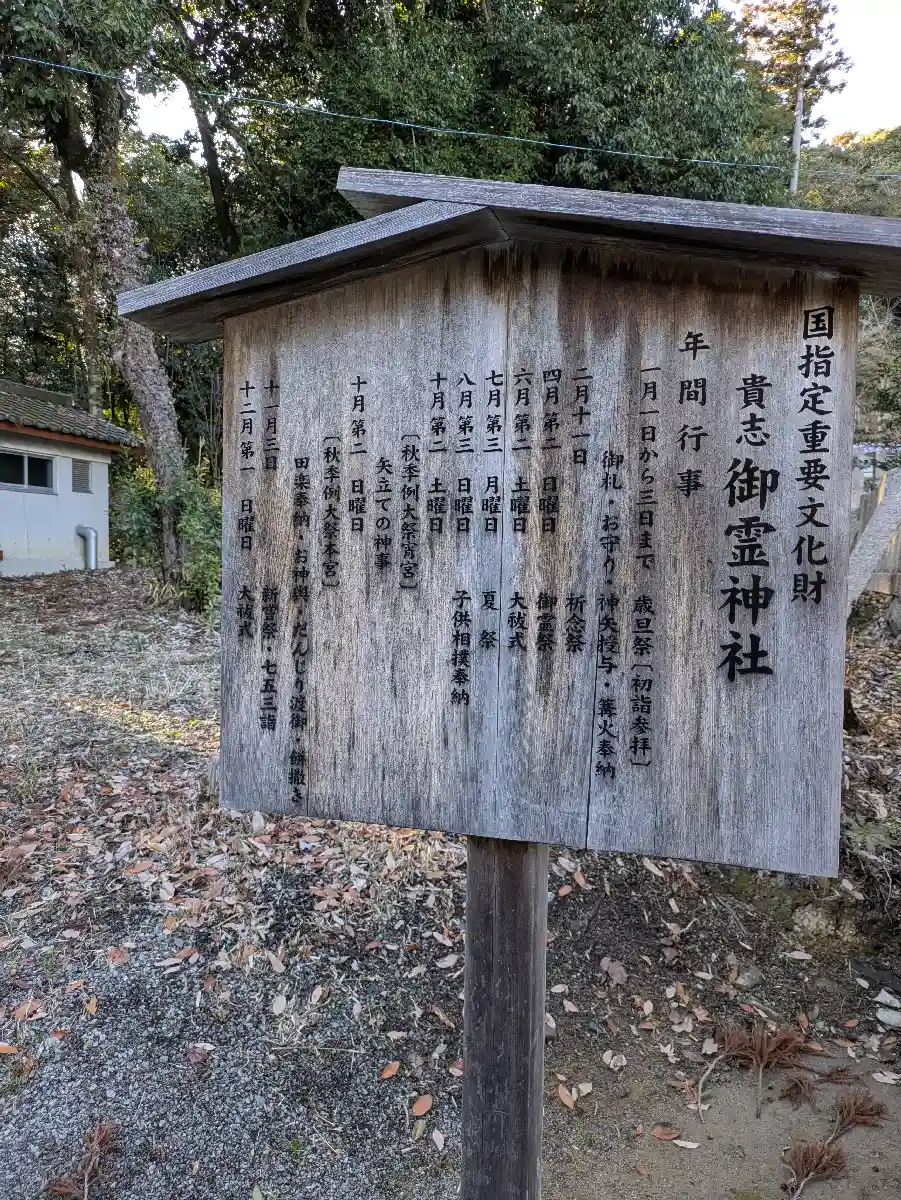 国指定重要文化財
貴志御霊神社
年間行事
一月一日から三日まで 歳旦祭〔初詣参拝〕
御札・お守り・神矢授与・篝火奉納
二月十一日 祈念祭
四月第二 日曜日 御霊祭
六月第二 土曜日 大祓式
七月第三 月曜日 夏祭
八月第三 日曜日 子供相撲奉納
十月第二 土曜日
〔秋季例大祭宵宮〕
矢立ての神事
十月第二 日曜日
〔秋季例大祭本宮〕
田楽奉納・お神輿・だんじり渡御・餅撒き
十一月三日 新嘗祭・七五三詣
十二月第一 日曜日 大祓式